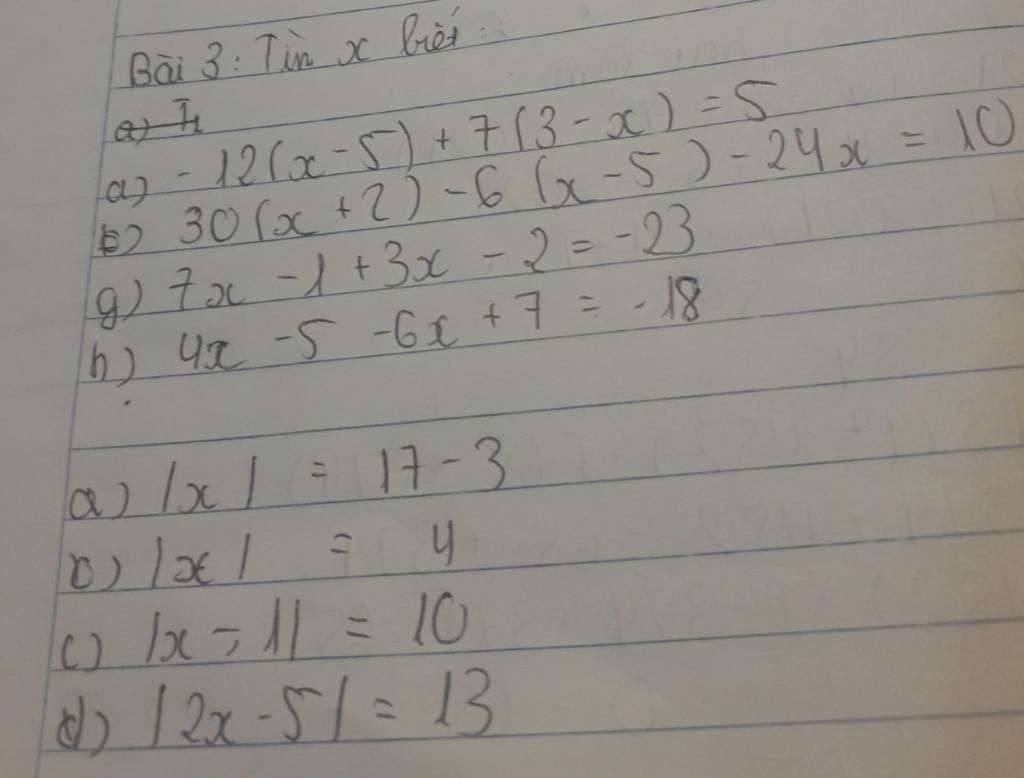 Bài 3: Tìm x biết:
a) 7
a) - 12(x - 5) + 7(3 - x) = 5
b) 30(x + 2) - 6(x - 5) - 24x = 10
g) 7x - 1 + 3x - 2 = -23
h) 4x - 5 - 6x + 7 = - 18
a) |x| = 17 - 3
b) |x| = 4
c) |x - 1| = 10
d) |2x - 5| = 13